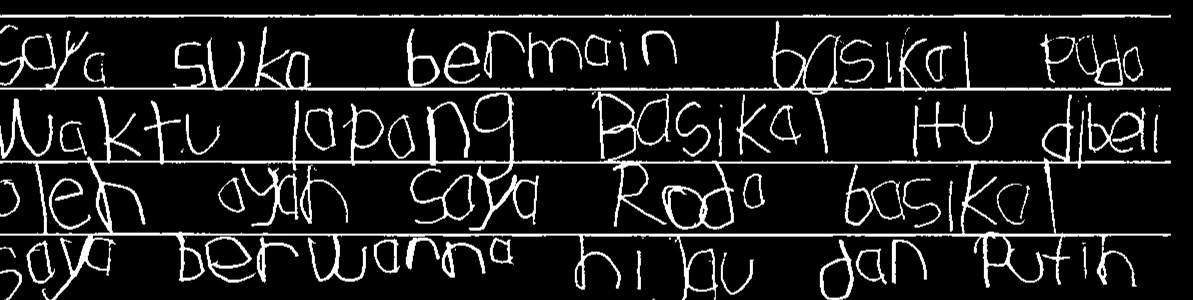 saya suka bermain basikal pada
waktu lapang Basikal itu dibeli
oleh ayah saya Roda basikal
saya berwanna hijau dan Putih